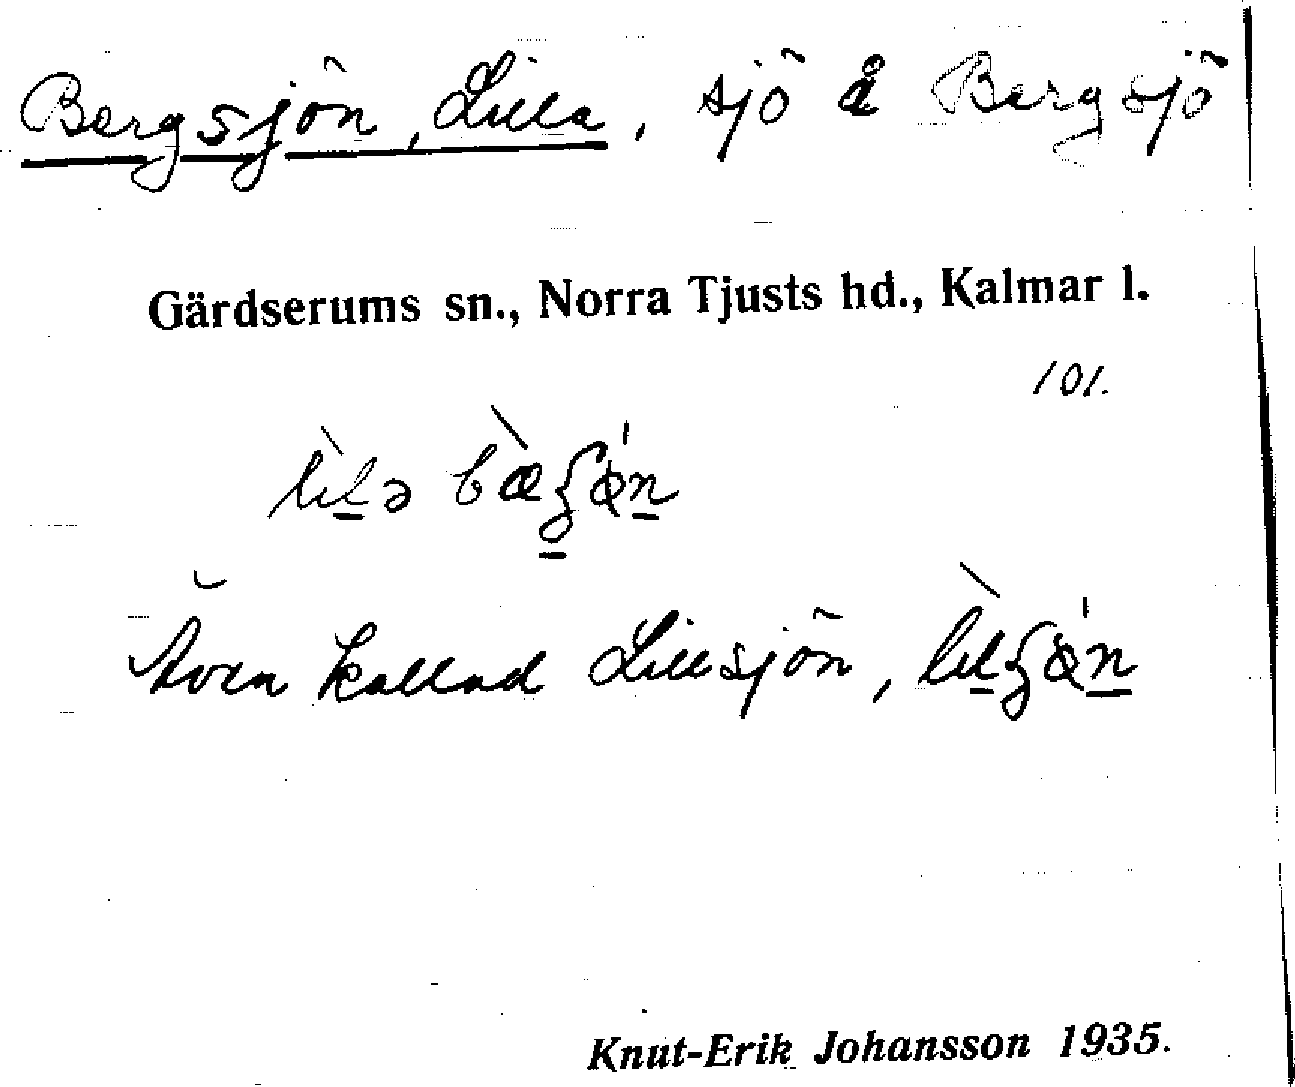 Bergsjön, Lilla, sjö å Bergsjö
Gärdserums sn., Norra Tjusts hd., Kalmar l.
101.
Även kallad Lillsjön,
Knut-Erik Johansson 1935.